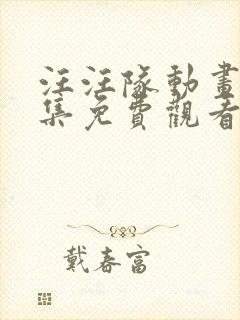 汪汪隊動畫
集免費觀看
戴春富